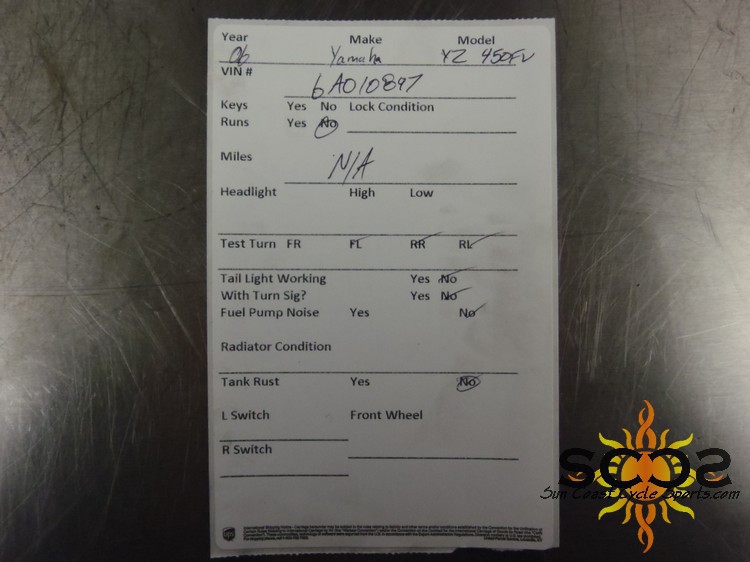 Year Make Model
06 Yamaha YZ 450FV
VIN #
6A010897
Keys Yes No Lock Condition
Runs Yes No
Miles N/A
Headlight High Low
Test Turn FR FL RR RL
Tail Light Working Yes No
With Turn Sig? Yes No
Fuel Pump Noise Yes No
Radiator Condition
Tank Rust Yes No
L Switch Front Wheel
R Switch
SCCS
Sun Coast Cycle Sports.com